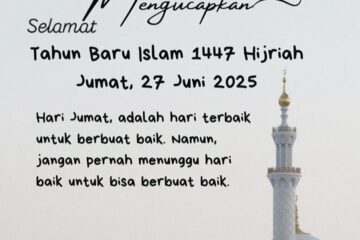 Mengucapkan
Selamat
Tahun Baru Islam 1447 Hijriah
Jumat, 27 Juni 2025
Hari Jumat, adalah hari terbaik
untuk berbuat baik. Namun,
jangan pernah menunggu hari
baik untuk bisa berbuat baik.